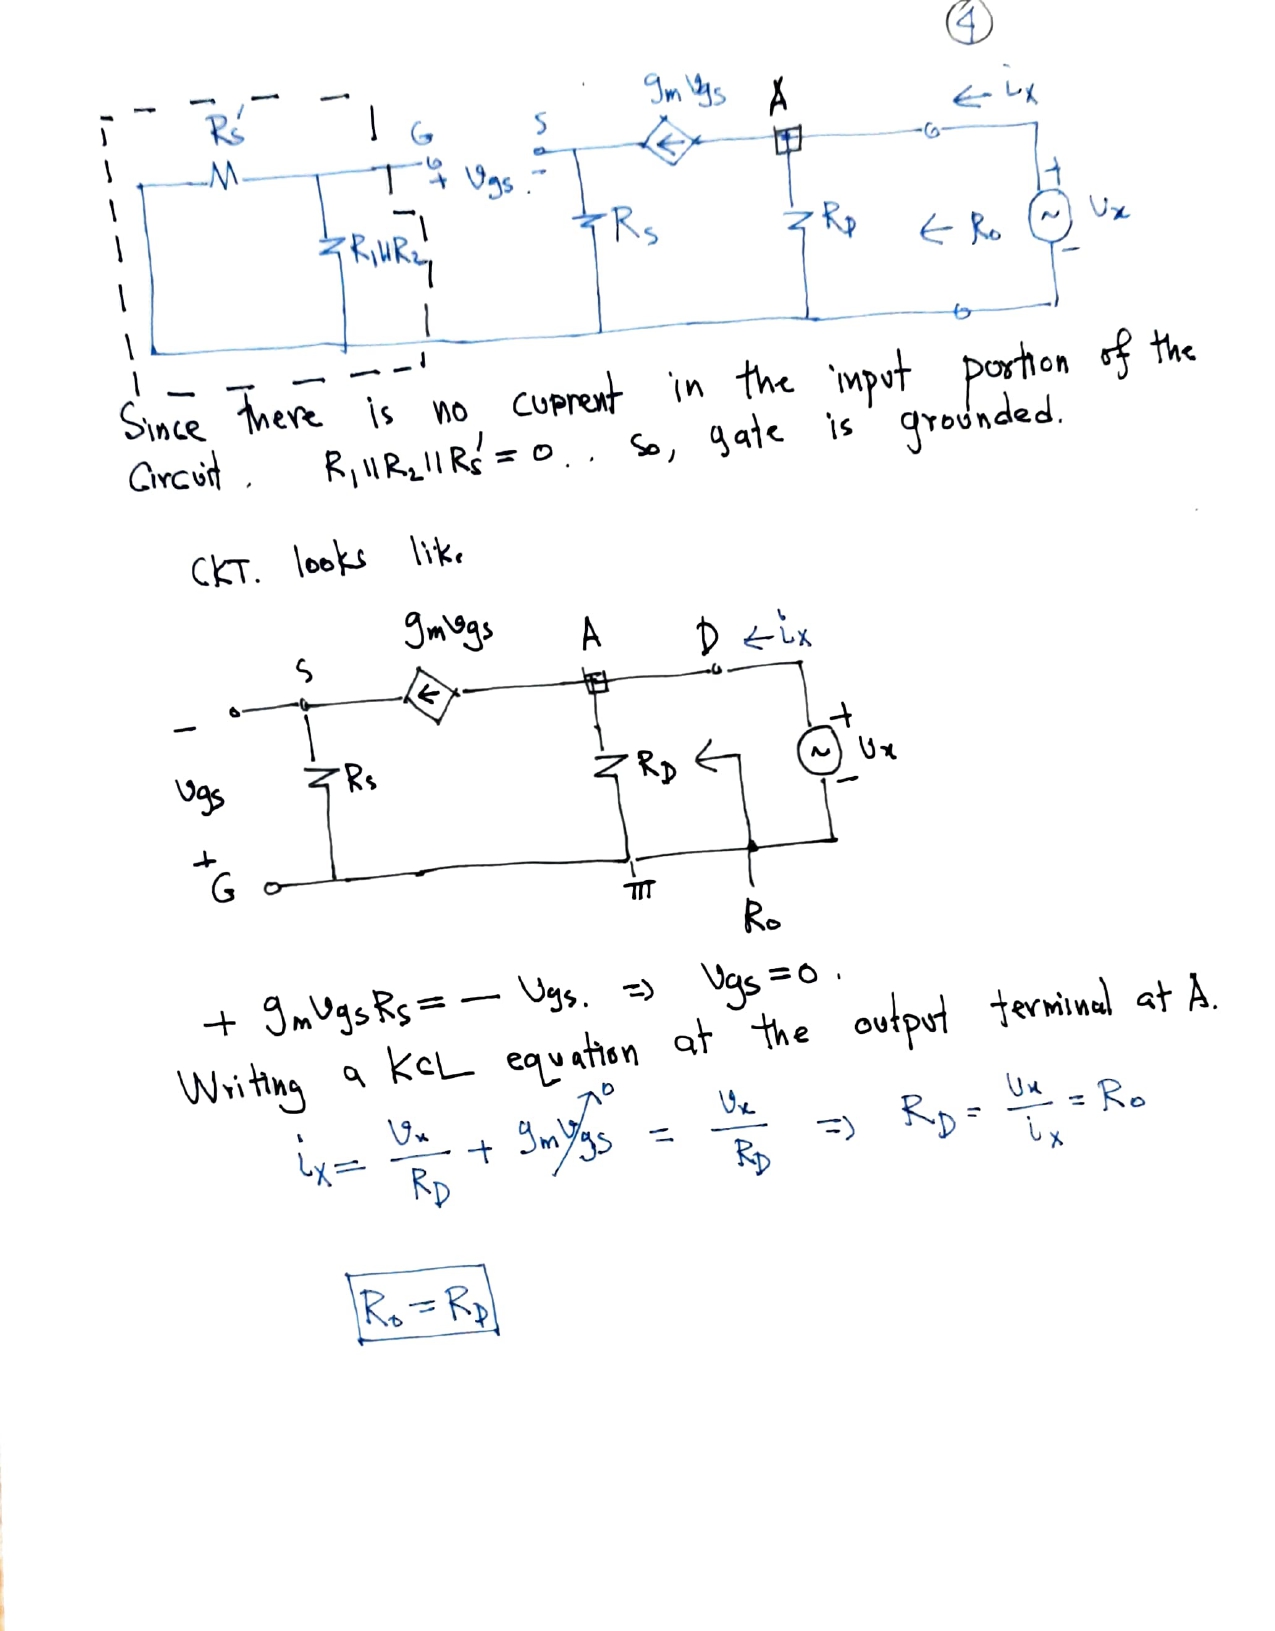 ④
Rs'
G
+ Vgs -
S
gm Vgs
A
← ix
R1||R2
Rs
RD
← Ro
+
Vx
-
Since there is no current in the input portion of the
Circuit. R1||R2||Rs' = 0.. So, gate is grounded.
CKT. looks like
gmVgs
A
D ← ix
S
-
Vgs
+
G
Rs
RD
+
Vx
-
Ro
+ gmVgsRs = - Vgs. => Vgs = 0.
Writing a KCL equation at the output terminal at A.
ix = Vx/RD + gmVgs→0 = Vx/RD => RD = Vx/ix = Ro
Ro = RD